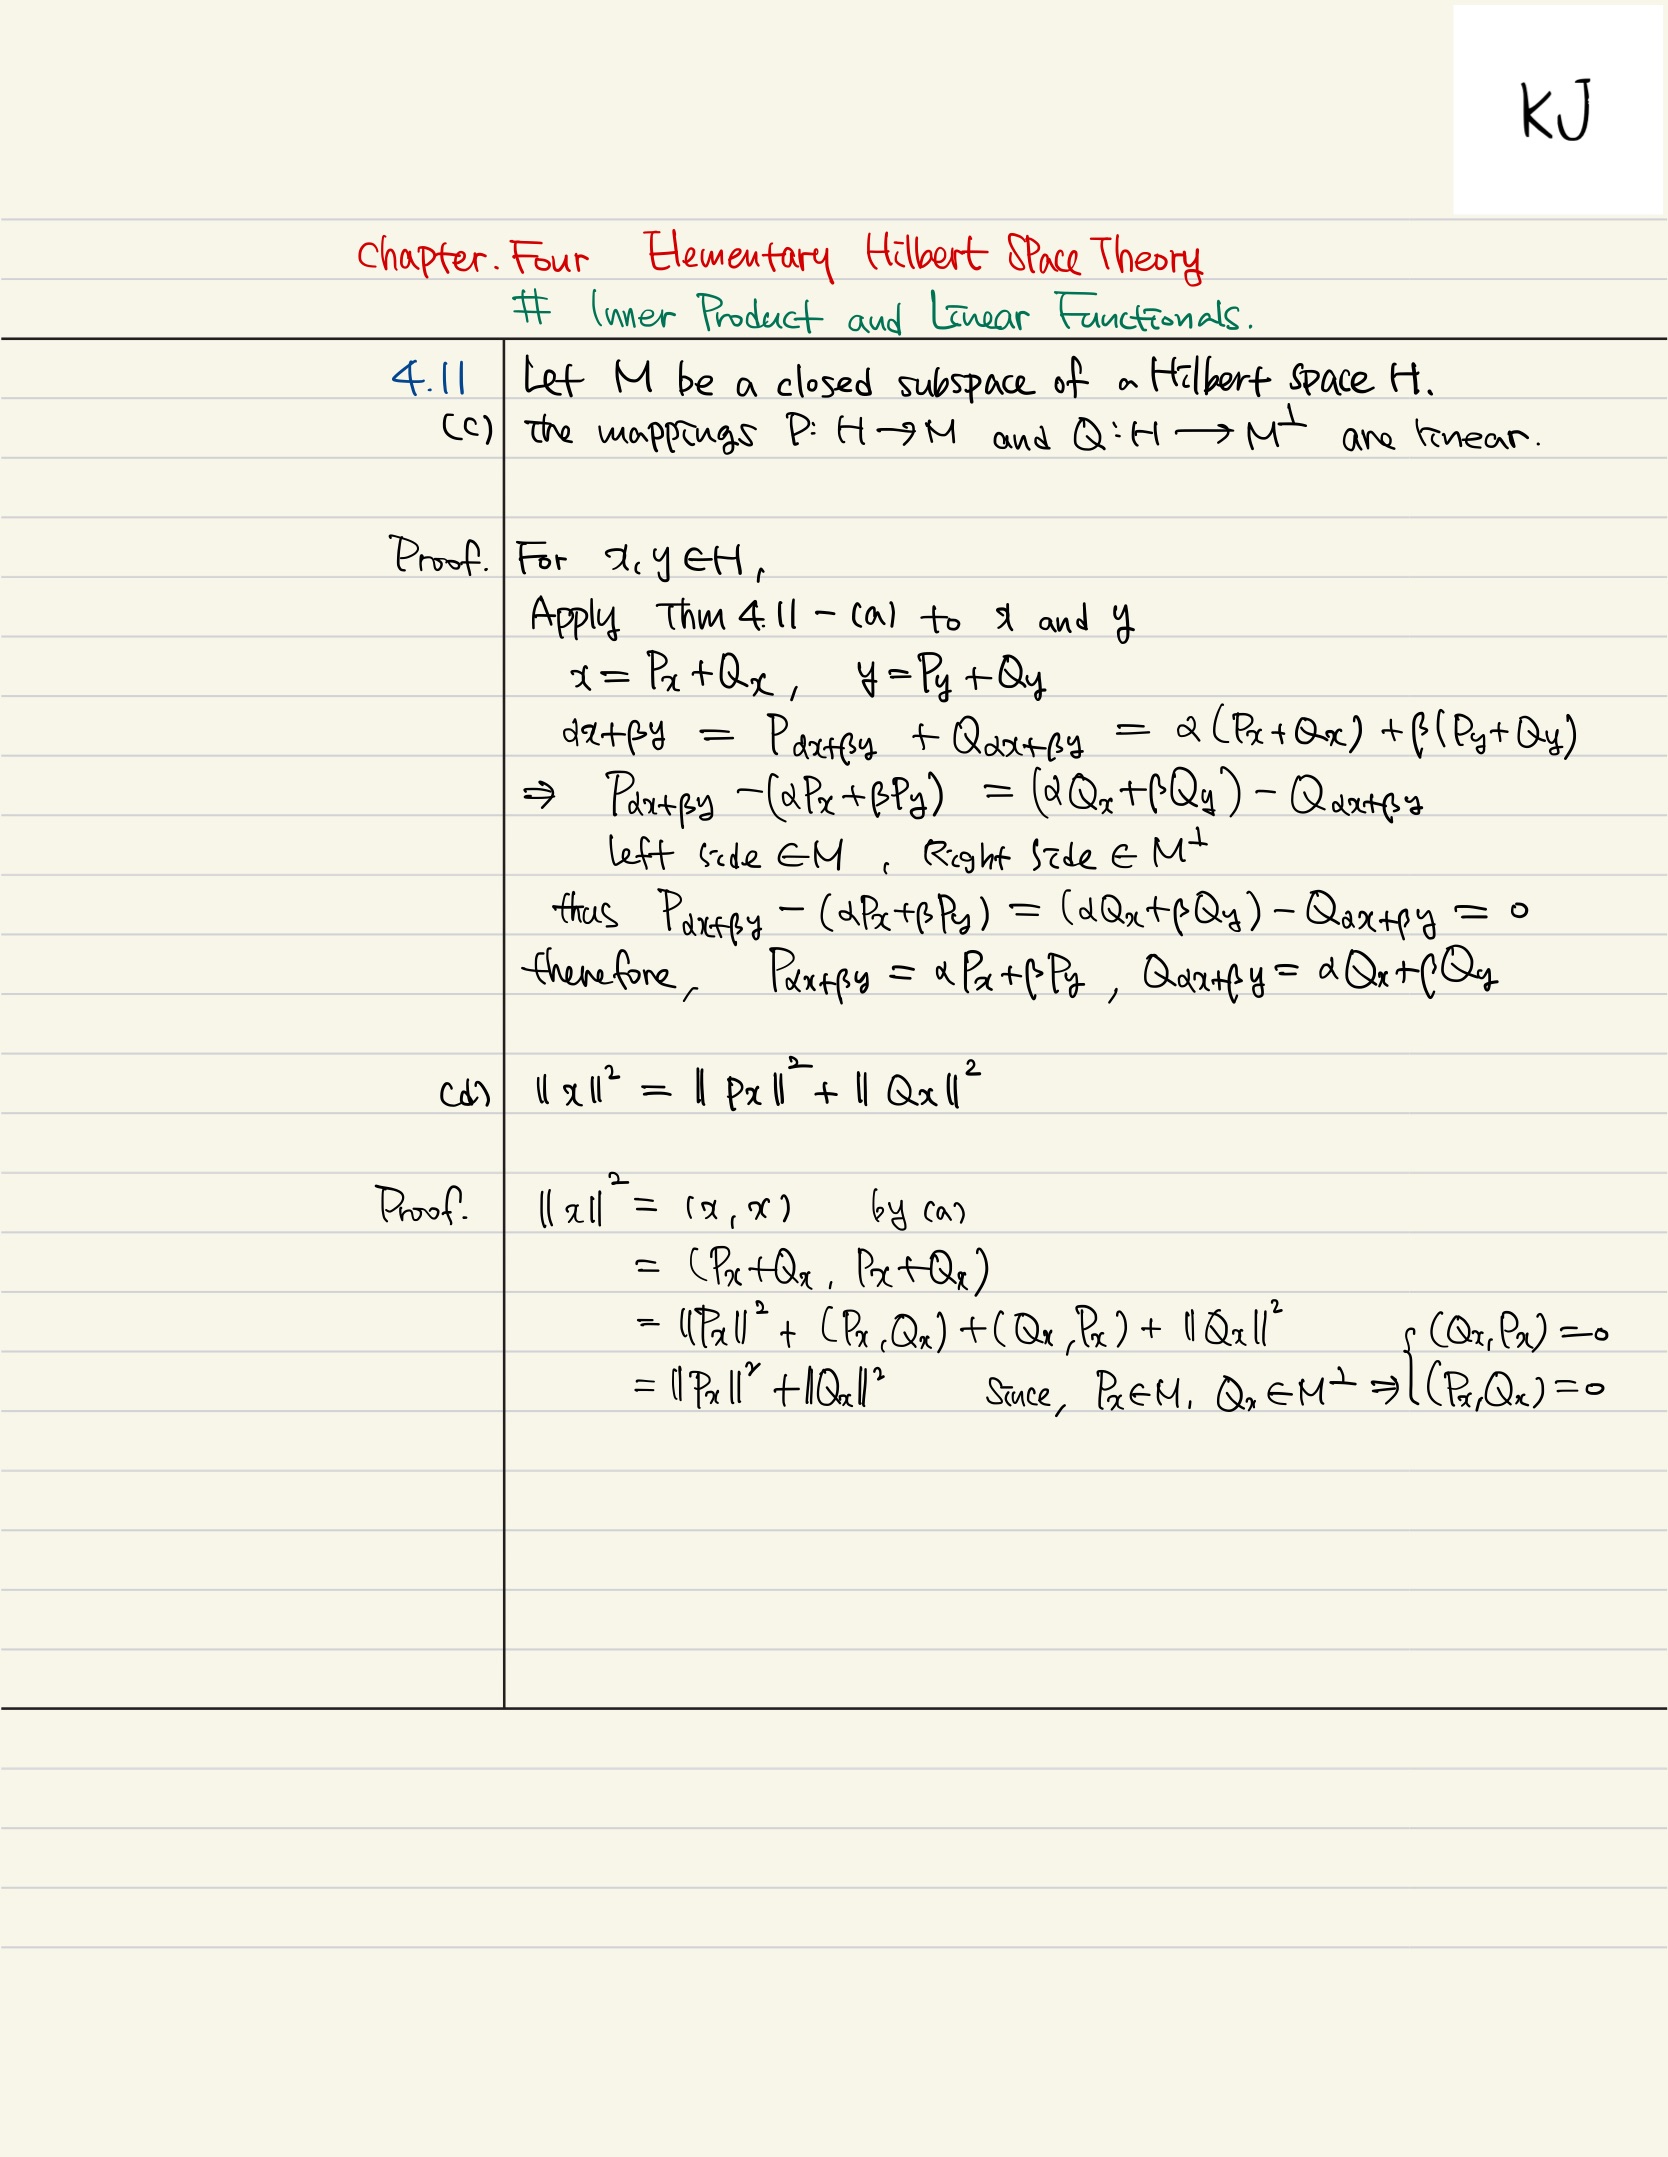 KJ
Chapter. Four Elementary Hilbert Space Theory
# Inner Product and Linear Functionals.
4.11 Let M be a closed subspace of a Hilbert space H.
(c) the mappings P: H → M and Q: H → M⊥ are linear.
Proof. For x, y ∈ H,
Apply Thm 4.11 - (a) to x and y
x = Px + Qx, y = Py + Qy
αx+βy = Pαx+βy + Qαx+βy = α(Px+Qx) + β(Py+Qy)
⇒ Pαx+βy - (αPx+βPy) = (αQx+βQy) - Qαx+βy
Left side ∈ M, Right side ∈ M⊥
thus Pαx+βy - (αPx+βPy) = (αQx+βQy) - Qαx+βy = 0
therefore, Pαx+βy = αPx+βPy, Qαx+βy = αQx+βQy
(d) ‖x‖² = ‖Px‖² + ‖Qx‖²
Proof. ‖x‖² = (x, x) by (a)
= (Px+Qx, Px+Qx)
= ‖Px‖² + (Px, Qx) + (Qx, Px) + ‖Qx‖² { (Qx, Px) = 0
= ‖Px‖² + ‖Qx‖² Since, Px ∈ M, Qx ∈ M⊥ ⇒ (Px, Qx) = 0